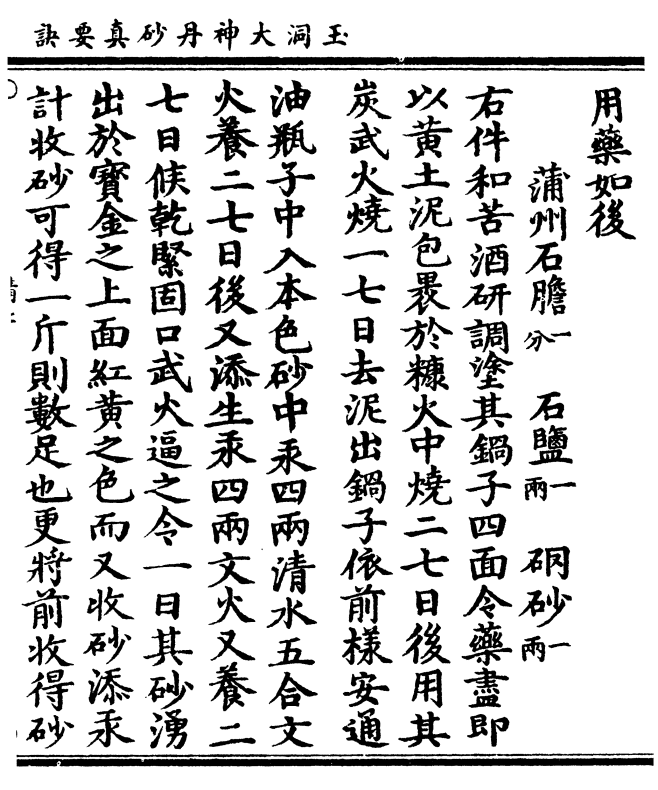 玉洞大神丹砂真要訣
用藥如後
蒲州石膽一分　石鹽一兩　硇砂一兩
右件和苦酒研調塗其鍋子四面令藥盡即
以黃土泥包褁於糠火中燒二七日後用其
炭武火燒一七日去泥出鍋子依前樣安通
油瓶子中入本色砂中汞四兩清水五合文
火養二七日後又添生汞四兩文火又養二
七日候乾緊固口武火逼之令一日其砂湧
出於寶金之上面紅黃之色而又收砂添汞
計收砂可得一斤則數足也更將前收得砂